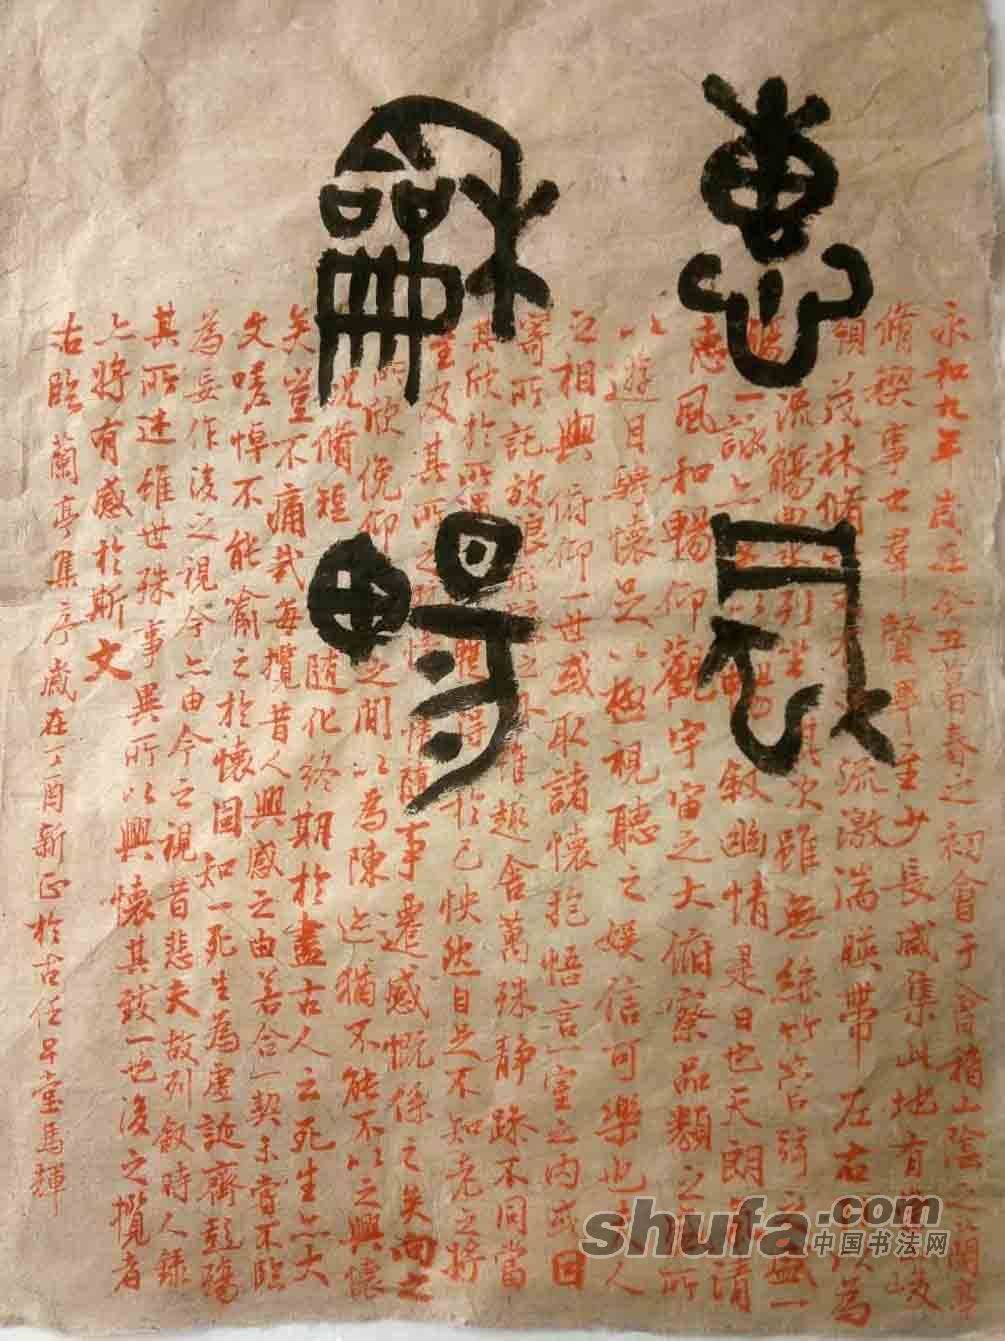 惠風
龢暢
永和九年歲在癸丑暮春之初會于會稽山陰之蘭亭
脩禊事也羣賢畢至少長咸集此地有崇山峻
領茂林脩竹又有清流激湍映帶左右引以為
流觴曲水列坐其次雖無絲竹管弦之盛一
觴一詠亦足以暢敘幽情是日也天朗氣清
惠風和暢仰觀宇宙之大俯察品類之盛所
以遊目騁懷足以極視聽之娛信可樂也夫人
之相與俯仰一世或取諸懷抱悟言一室之內或因
寄所託放浪形骸之外雖趣舍萬殊靜躁不同當
其欣於所遇暫得於己怏然自足不知老之將
至及其所之既惓情隨事遷感慨係之矣向之
所欣俛仰之間以為陳迹猶不能不以之興懷
況脩短隨化終期於盡古人云死生亦大
矣豈不痛哉每攬昔人興感之由若合一契未嘗不臨
文嗟悼不能喻之於懷固知一死生為虛誕齊彭殤
為妄作後之視今亦由今之視昔悲夫故列敘時人錄
其所述雖世殊事異所以興懷其致一也後之攬者
亦將有感於斯文
右臨蘭亭集序歲在丁酉新正於古任堂馬輝
shufa.com
中国书法网